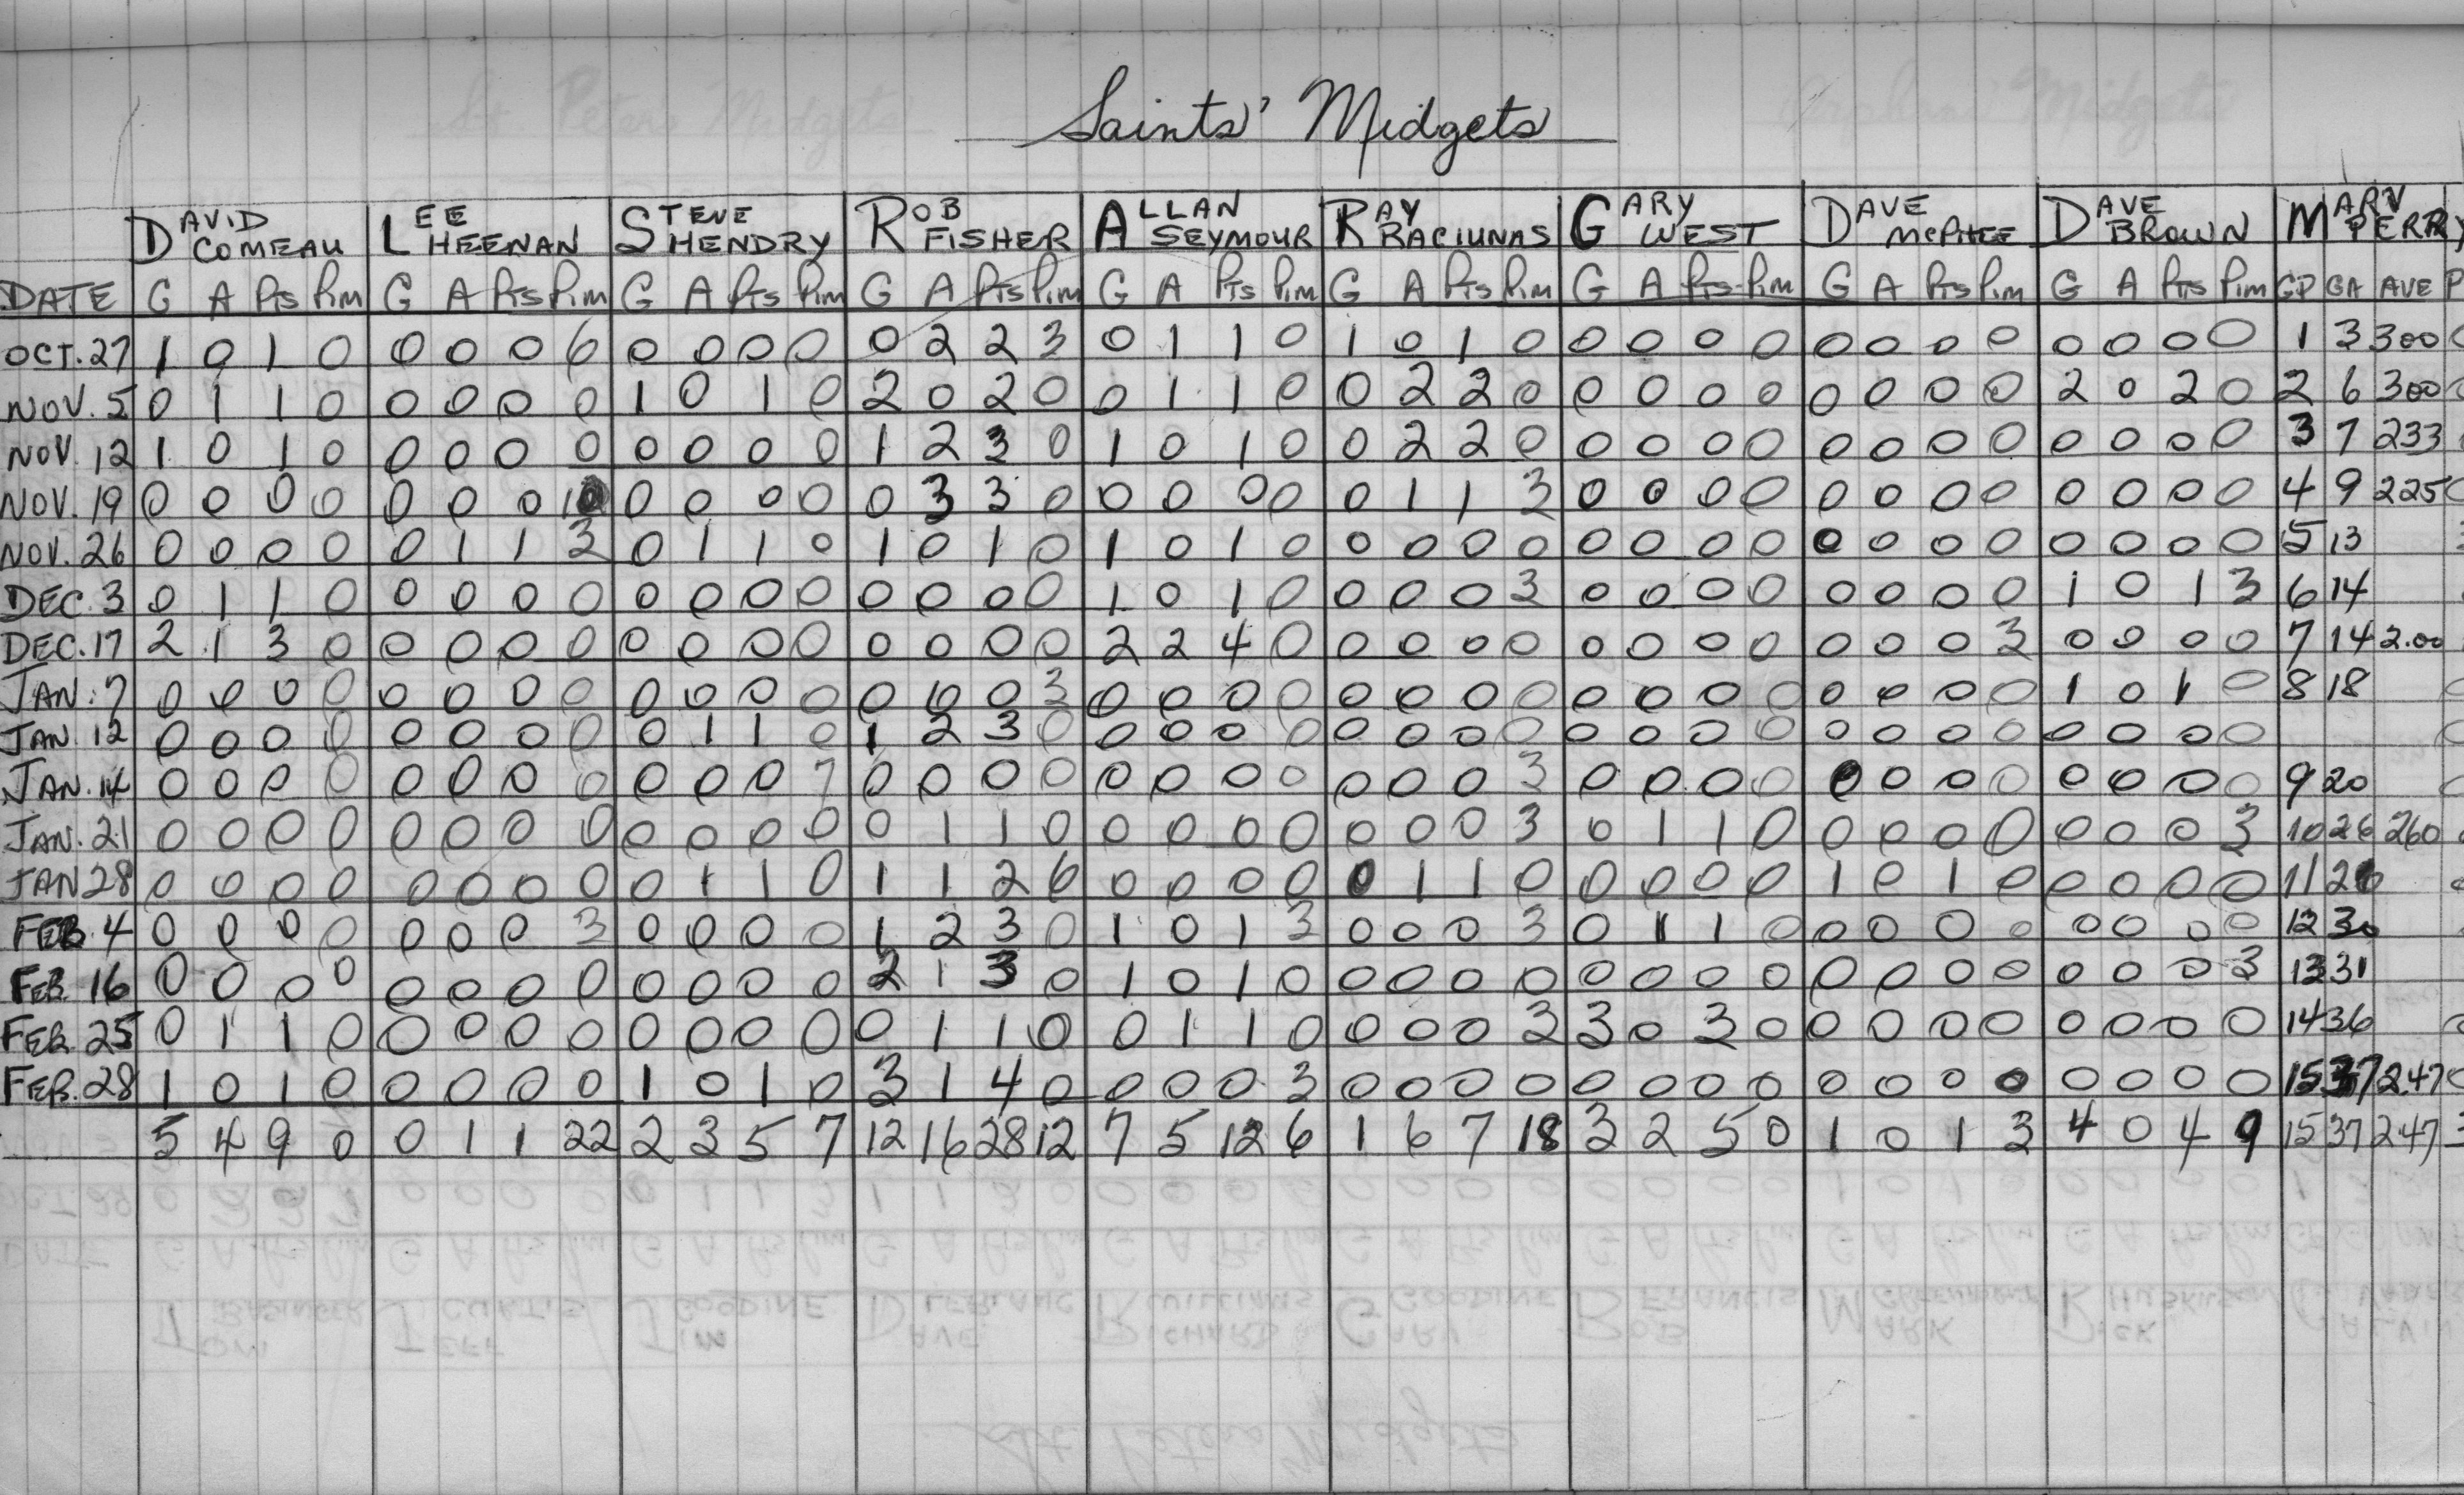 Saints' Midgets
DAVID COMEAU LEE HEENAN STEVE HENDRY ROB FISHER ALLAN SEYMOUR RAY RACIUNAS GARY WEST DAVE McPHEE DAVE BROWN MARV PERRY
DATE G A Pts Pim G A Pts Pim G A Pts Pim G A Pts Pim G A Pts Pim G A Pts Pim G A Pts Pim G A Pts Pim G A Pts Pim GP GA AVE P
OCT. 27 1 0 1 0 0 0 0 6 0 0 0 0 0 2 2 3 0 1 1 0 1 0 1 0 0 0 0 0 0 0 0 0 0 0 0 0 1 3 300
NOV. 5 0 1 1 0 0 0 0 0 1 0 1 0 2 0 2 0 0 1 1 0 0 2 2 0 0 0 0 0 0 0 0 0 2 0 2 0 2 6 300
NOV. 12 1 0 1 0 0 0 0 0 0 0 0 0 1 2 3 0 1 0 1 0 0 2 2 0 0 0 0 0 0 0 0 0 0 0 0 0 3 7 233
NOV. 19 0 0 0 0 0 0 0 10 0 0 0 0 0 3 3 0 0 0 0 0 0 1 1 3 0 0 0 0 0 0 0 0 0 0 0 0 4 9 225
NOV. 26 0 0 0 0 0 1 1 3 0 1 1 0 1 0 1 0 1 0 1 0 0 0 0 0 0 0 0 0 0 0 0 0 0 0 0 0 5 13
DEC. 3 0 1 1 0 0 0 0 0 0 0 0 0 0 0 0 0 1 0 1 0 0 0 0 3 0 0 0 0 0 0 0 0 1 0 1 3 6 14
DEC. 17 2 1 3 0 0 0 0 0 0 0 0 0 0 0 0 0 2 2 4 0 0 0 0 0 0 0 0 0 0 0 0 3 0 0 0 0 7 14 2.00
JAN. 7 0 0 0 0 0 0 0 0 0 0 0 0 0 0 0 3 0 0 0 0 0 0 0 0 0 0 0 0 0 0 0 0 1 0 1 0 8 18
JAN. 12 0 0 0 0 0 0 0 0 0 1 1 0 1 2 3 0 0 0 0 0 0 0 0 0 0 0 0 0 0 0 0 0 0 0 0 0
JAN. 14 0 0 0 0 0 0 0 0 0 0 0 7 0 0 0 0 0 0 0 0 0 0 0 3 0 0 0 0 0 0 0 0 0 0 0 0 9 20
JAN. 21 0 0 0 0 0 0 0 0 0 0 0 0 0 1 1 0 0 0 0 0 0 0 0 3 0 1 1 0 0 0 0 0 0 0 0 3 10 26 260
JAN 28 0 0 0 0 0 0 0 0 0 1 1 0 1 1 2 6 0 0 0 0 0 1 1 0 0 0 0 0 1 0 1 0 0 0 0 0 11
FEB. 4 0 0 0 0 0 0 0 3 0 0 0 0 1 2 3 0 1 0 1 3 0 0 0 3 0 1 1 0 0 0 0 0 0 0 0 0 12 30
FEB. 16 0 0 0 0 0 0 0 0 0 0 0 0 2 1 3 0 1 0 1 0 0 0 0 0 0 0 0 0 0 0 0 0 0 0 0 3 13 31
FEB. 25 0 1 1 0 0 0 0 0 0 0 0 0 0 1 1 0 0 1 1 0 0 0 0 3 3 0 3 0 0 0 0 0 0 0 0 0 14 36
FEB. 28 1 0 1 0 0 0 0 0 1 0 1 0 3 1 4 0 0 0 0 3 0 0 0 0 0 0 0 0 0 0 0 0 0 0 0 0 15 37 2.47
5 4 9 0 0 1 1 22 2 3 5 7 12 16 28 12 7 5 12 6 1 6 7 18 3 2 5 0 1 0 1 3 4 0 4 9 15 37 247